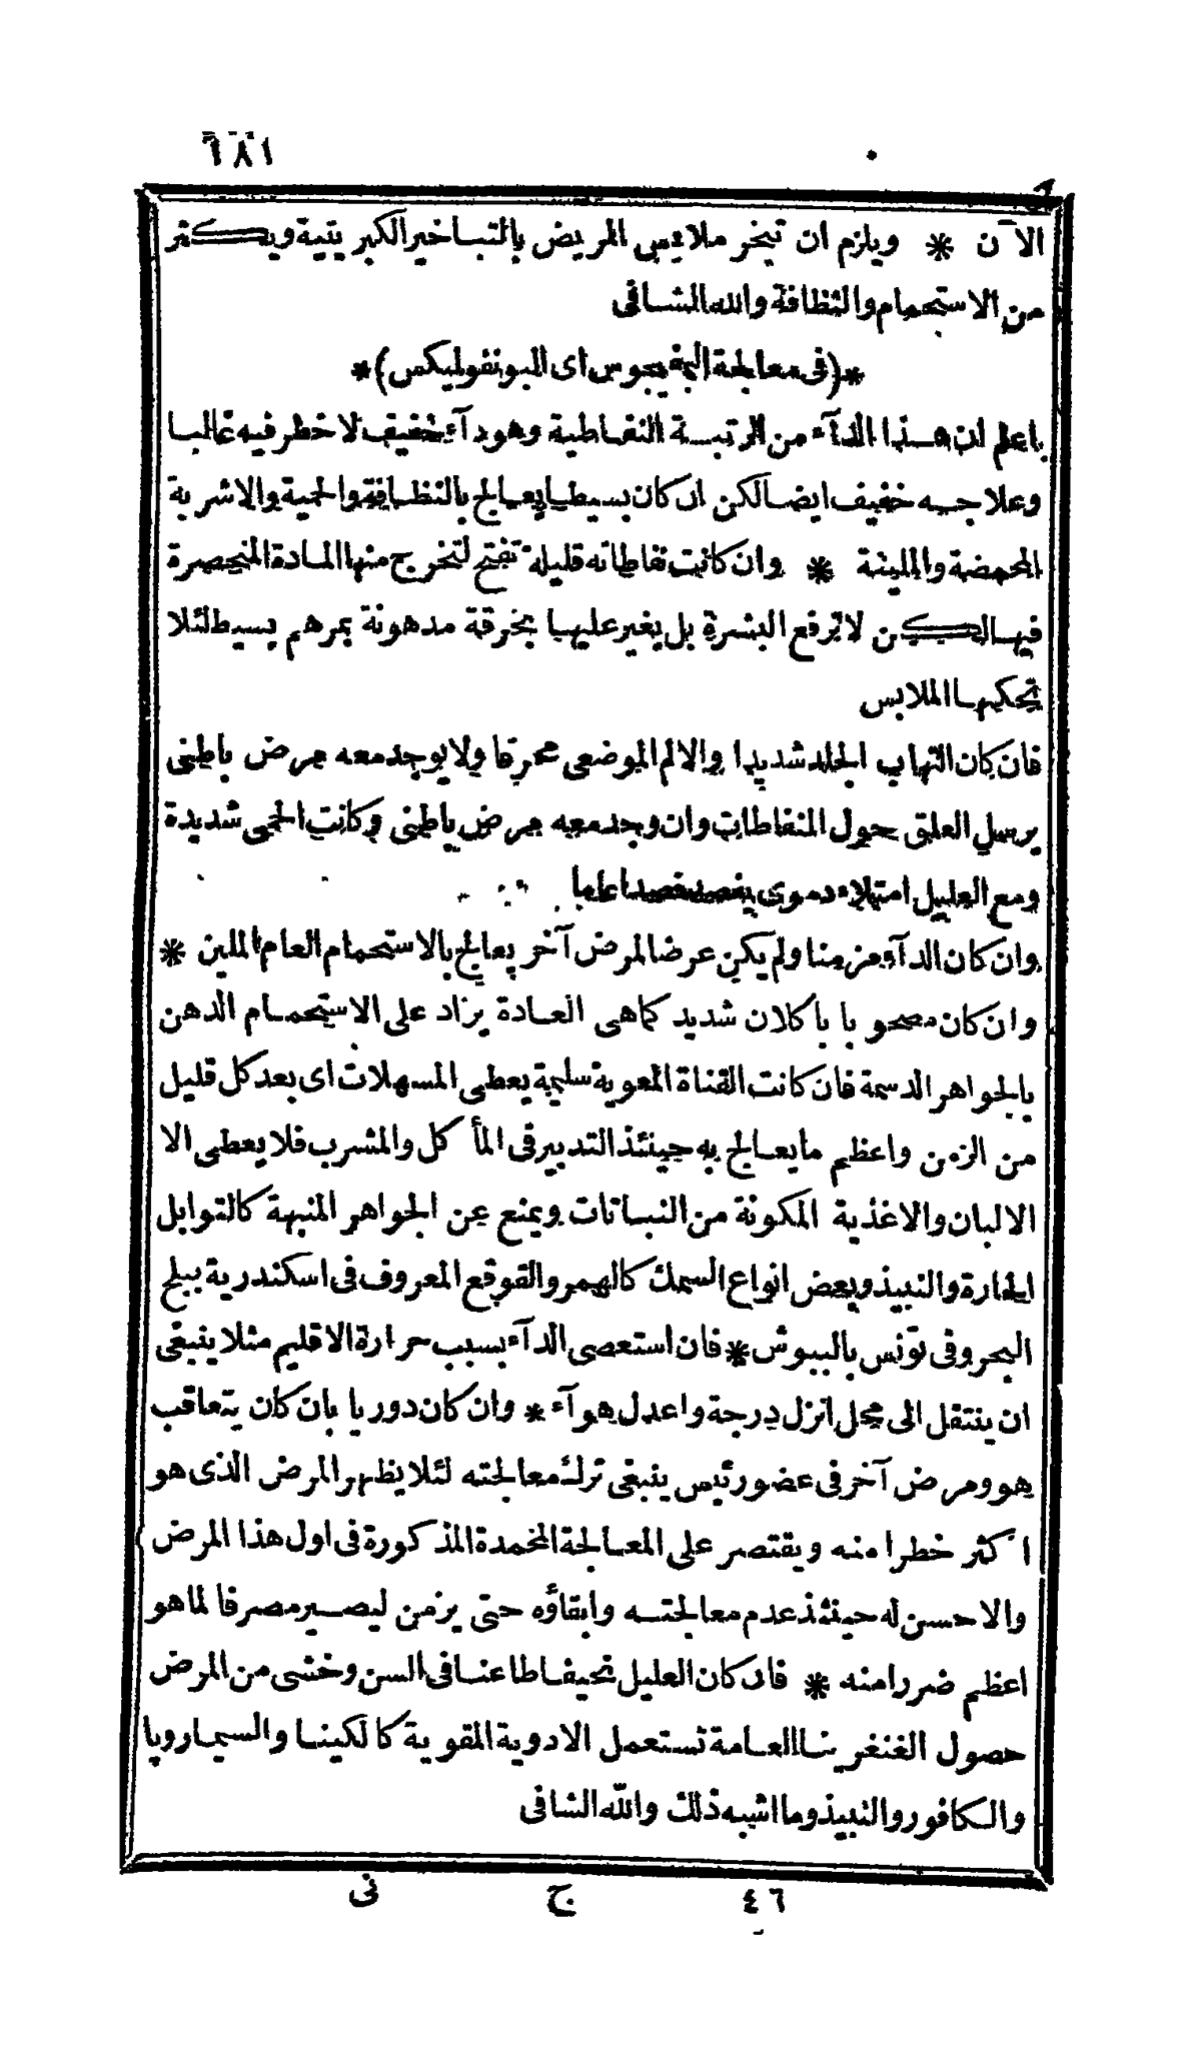 ٦٨١
الآن * ويلزم ان تبخر ملابس المريض بالتباخير الكبريتية ويكثر
من الاستحمام والنظافة والله الشافى
*(فى معالجة البمفيجوس اى البونفوليكس)*
اعلم ان هذا الدآء من الرتبة النفاطية وهو دآء خفيف لا خطر فيه غالبا
وعلاجه خفيف ايضا لكن ان كان بسيطا يعالج بالنظافة والحمية والاشربة
المحمضة والملينة * وان كانت نفاطاته قليلة تفتح لتخرج منها المادة المنحصرة
فيها لكن لا ترفع البشرة بل يغير عليها بخرقة مدهونة بمرهم بسيط لئلا
تحكها الملابس
فان كان التهاب الجلد شديدا والالم الموضعى محرقا ولا يوجد معه مرض باطنى
يرسل العلق حول المنفاطات وان وجد معه مرض باطنى وكانت الحمى شديدة
ومع العليل امتلاء دموى يفصد فصدا عاما
وان كان الدآء مزمنا ولم يكن عرضا لمرض آخر يعالج بالاستحمام العام الملين *
وان كان مصحوبا باكلان شديد كما هى العادة يزاد على الاستحمام الدهن
بالجواهر الدسمة فان كانت القناة المعوية سليمة يعطى المسهلات اى بعد كل قليل
من الزمن واعظم ما يعالج به حينئذ التدبير فى المأكل والمشرب فلا يعطى الا
الالبان والاغذية المكونة من النباتات ويمنع عن الجواهر المنبهة كالتوابل
الحارة والنبيذ وبعض انواع السمك كالهمر والقوقع المعروف فى اسكندرية ببلح
البحر وفى تونس بالببوش * فان استعصى الدآء بسبب حرارة الاقليم مثلا ينبغى
ان ينتقل الى محل انزل درجة واعدل هوآء * وان كان دوريا بان كان يتعاقب
هو ومرض آخر فى عضو رئيس ينبغى ترك معالجته لئلا يظهر المرض الذى هو
اكثر خطرا منه ويقتصر على المعالجة المخمدة المذكورة فى اول هذا المرض
والاحسن له حينئذ عدم معالجته وابقاؤه حتى يزمن ليصير مصرفا لما هو
اعظم ضررا منه * فان كان العليل نحيفا طاعنا فى السن وخشى من المرض
حصول الغنغرينا العامة تستعمل الادوية المقوية كالكينا والسيماروبا
والكافور والنبيذ وما اشبه ذلك والله الشافى
٤٦ ج نى